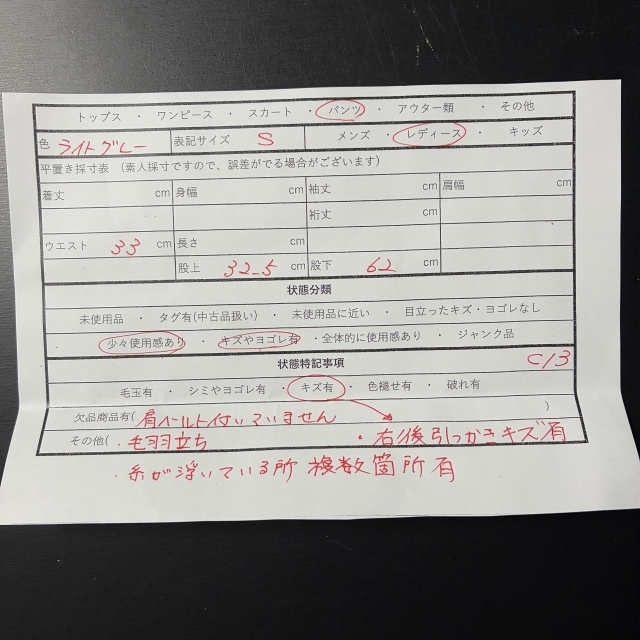 トップス ・ ワンピース ・ スカート ・ パンツ ・ アウター類 ・ その他
色 ライトグレー 表記サイズ S メンズ ・ レディース ・ キッズ
平置き採寸表 (素人採寸ですので、誤差がでる場合がございます)
着丈 cm 身幅 cm 袖丈 cm 肩幅 cm
裄丈 cm
ウエスト 33 cm 長さ cm
股上 32.5 cm 股下 62 cm
状態分類
未使用品 ・ タグ有(中古品扱い) ・ 未使用品に近い ・ 目立ったキズ・ヨゴレなし
・ 少々使用感あり ・ キズやヨゴレ有 ・全体的に使用感あり ・ ジャンク品
状態特記事項 C13
毛玉有 ・ シミやヨゴレ有 ・ キズ有 ・ 色褪せ有 ・ 破れ有
欠品商品有( 肩ベルト付いていません )
その他( ・毛羽立ち ・右後引っかきキズ有
・糸が浮いている所 複数箇所有